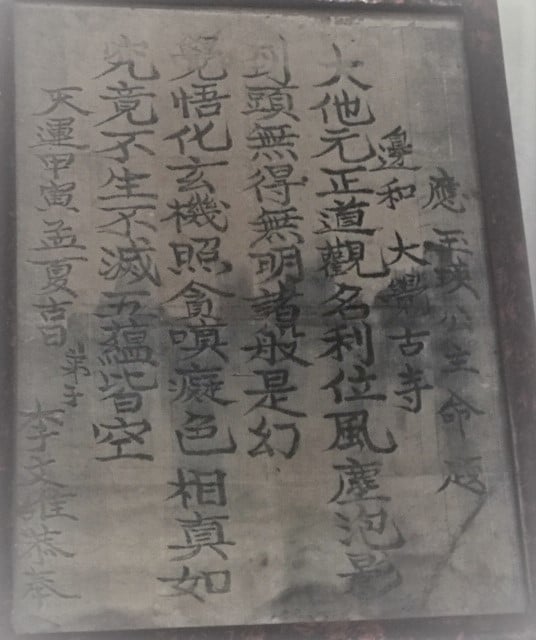 應玉瑛公主命題
邊和 大覺古寺
大他元正道觀名利位風塵泡影
到頭無得無明諸般是幻
覺悟化玄機照貪嗔癡色相真如
究竟不生不滅五蘊皆空
天運甲寅孟夏吉日
弟子
李文雄恭奉